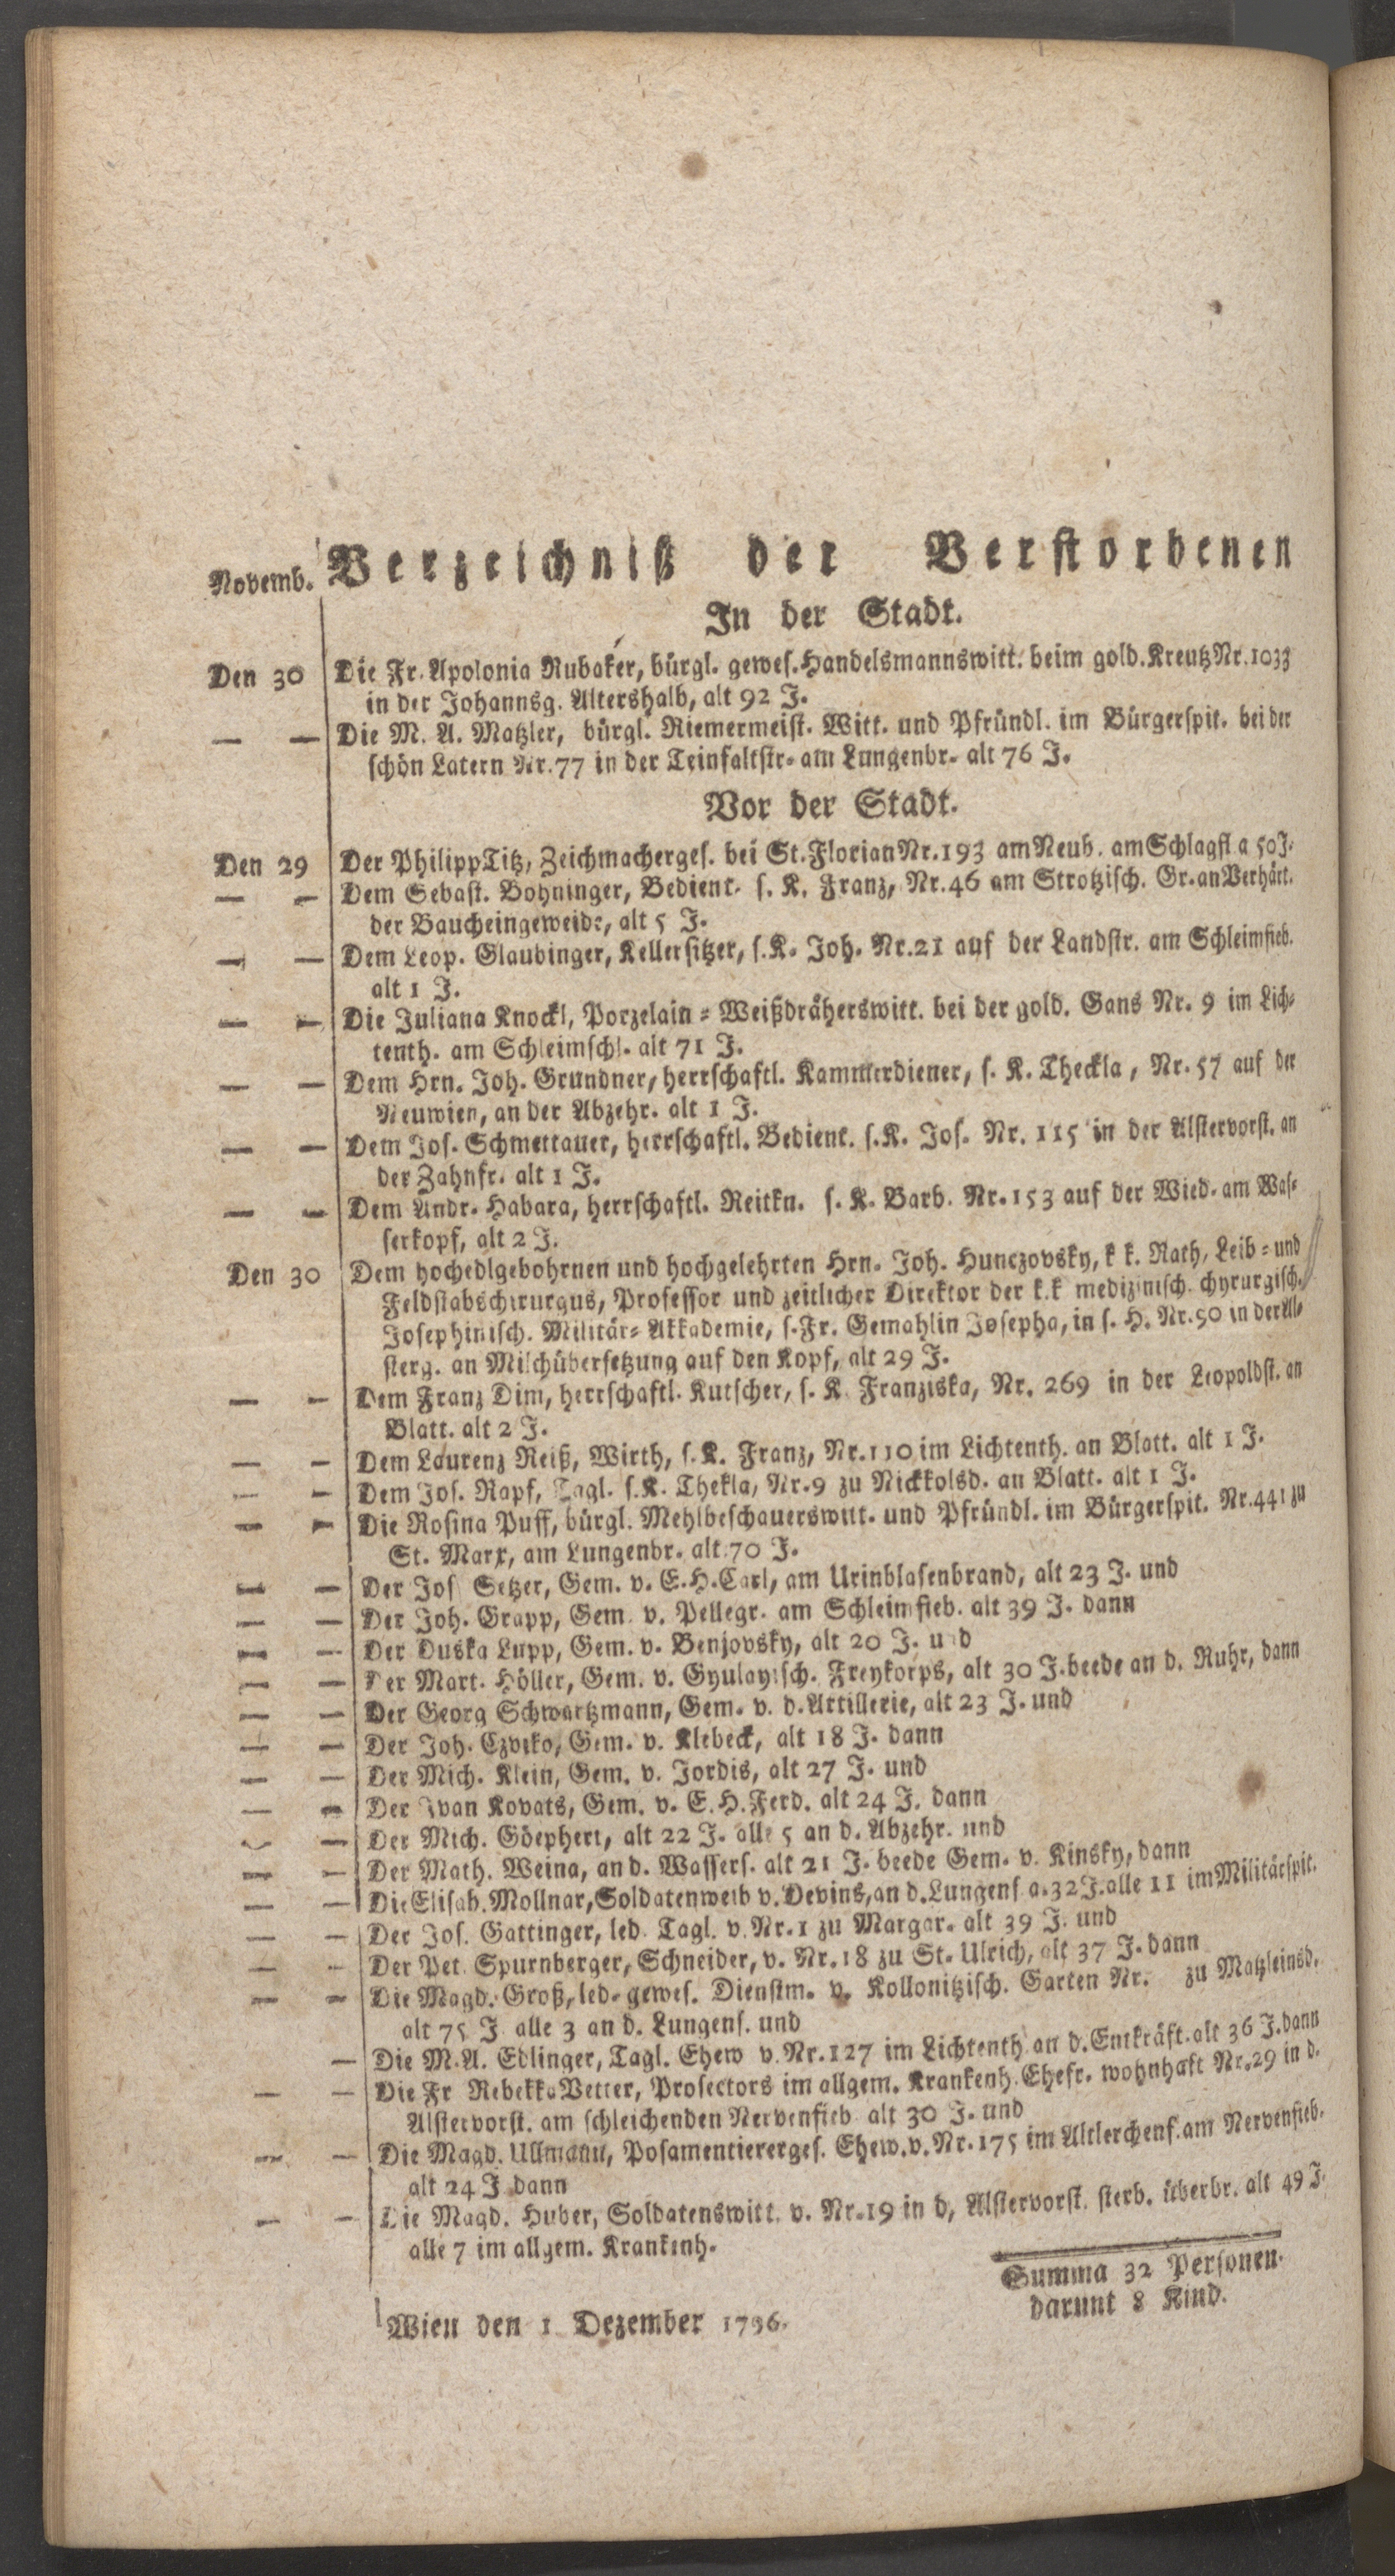 Novemb. Verzeichniß der Verstorbenen
In der Stadt.
Den 30 Die Fr. Apolonia Rubaker, bürgl. gewes. Handelsmannswitt. beim gold. Kreutz Nr. 1033
in der Johannsg. Altershalb, alt 92 J.
— — Die M. A. Matzler, bürgl. Riemermeist. Witt. und Pfründl. im Bürgerspit. bei der
schön Latern Nr. 77 in der Teinfaltstr. am Lungenbr. alt 76 J.
Vor der Stadt.
Den 29 Der Philipp Titz, Zeichmacherges. bei St. Florian Nr. 193 am Neub. am Schlagfl a 50 J.
— — Dem Sebast. Bohninger, Bedient. s. K. Franz, Nr. 46 am Strotzisch. Gr. an Verhärt.
der Baucheingeweide, alt 5 J.
— — Dem Leop. Glaubinger, Kellersitzer, s. K. Joh. Nr. 21 auf der Landstr. am Schleimfieb.
alt 1 J.
— — Die Juliana Knockl, Porzelain-Weißdräherswitt. bei der gold. Gans Nr. 9 im Lich-
tenth. am Schleimschl. alt 71 J.
— — Dem Hrn. Joh. Grundner, herrschaftl. Kammerdiener, s. K. Theckla, Nr. 57 auf der
Neuwien, an der Abzehr. alt 1 J.
— — Dem Jos. Schmettauer, herrschaftl. Bedient. s. K. Jos. Nr. 115 in der Alstervorst. an
der Zahnfr. alt 1 J.
— — Dem Andr. Habara, herrschaftl. Reitkn. s. K. Barb. Nr. 153 auf der Wied. am Was-
serkopf, alt 2 J.
Den 30 Dem hochedlgebohrnen und hochgelehrten Hrn. Joh. Hunczovsky, k k. Rath, Leib- und
Feldstabschirurgus, Professor und zeitlicher Direktor der k. k medizinisch chyrurgisch.
Josephinisch. Militär-Akkademie, s. Fr. Gemahlin Josepha, in s. H. Nr. 90 in der Al-
sterg. an Milchübersetzung auf den Kopf, alt 29 J.
— — Dem Franz Dim, herrschaftl. Kutscher, s. K. Franziska, Nr. 269 in der Leopoldst. an
Blatt. alt 2 J.
— — Dem Laurenz Reiß, Wirth, s. K. Franz, Nr. 110 im Lichtenth. an Blatt. alt 1 J.
— — Dem Jos. Rapf, Tagl. s. K. Thekla, Nr. 9 zu Nickkolsd. an Blatt. alt 1 J.
— — Die Rosina Puff, bürgl. Mehlbeschauerswitt. und Pfründl. im Bürgerspit. Nr. 441 zu
St. Marx, am Lungenbr. alt 70 J.
— — Der Jos Setzer, Gem. v. E. H. Carl, am Urinblasenbrand, alt 23 J. und
— — Der Joh. Grapp, Gem. v. Pellegr. am Schleimfieb. alt 39 J. dann
— — Der Duska Lupp, Gem. v. Benjovsky, alt 20 J. und
— — Der Mart. Höller, Gem. v. Gyulayisch. Freykorps, alt 30 J. beede an d. Ruhr, dann
— — Der Georg Schwartzmann, Gem. v. d. Artillerie, alt 23 J. und
— — Der Joh. Czviko, Gem. v. Klebeck, alt 18 J. dann
— — Der Mich. Klein, Gem. v. Jordis, alt 27 J. und
— — Der Ivan Kovats, Gem. v. E. H. Ferd. alt 24 J. dann
— — Der Mich. Göephert, alt 22 J. alle 5 an d. Abzehr. und
— — Der Math. Weina, an d. Wassers. alt 21 J. beede Gem. v. Kinsky, dann
— — Die Elisab. Mollnar, Soldatenweib v. Devins, an d. Lungens a. 32 J. alle 11 im Militärspit.
— — Der Jos. Gattinger, led. Tagl. v. Nr. 1 zu Margar. alt 39 J. und
— — Der Pet. Spurnberger, Schneider, v. Nr. 18 zu St. Ulrich, alt 37 J. dann
— — Die Magd. Groß, led. gewes. Dienstm. v. Kollonitzisch. Garten Nr. zu Matzleinsd.
alt 75 J alle 3 an d. Lungens. und
— Die M. A. Edlinger, Tagl. Ehew v. Nr. 127 im Lichtenth. an d. Entkräft. alt 36 J. dann
— — Die Fr Rebekka Vetter, Prosectors im allgem. Krankenh. Ehefr. wohnhaft Nr. 29 in d.
Alstervorst. am schleichenden Nervenfieb alt 30 J. und
— — Die Magd. Ullmann, Posamentiererges. Ehew. v. Nr. 175 im Altlerchenf. am Nervenfieb.
alt 24 J dann
— — Die Magd. Huber, Soldatenswitt. v. Nr. 19 in d, Alstervorst. sterb. überbr. alt 49 J.
alle 7 im allgem. Krankenh.
Summa 32 Personen.
darunt 8 Kind.
Wien den 1 Dezember 1796.